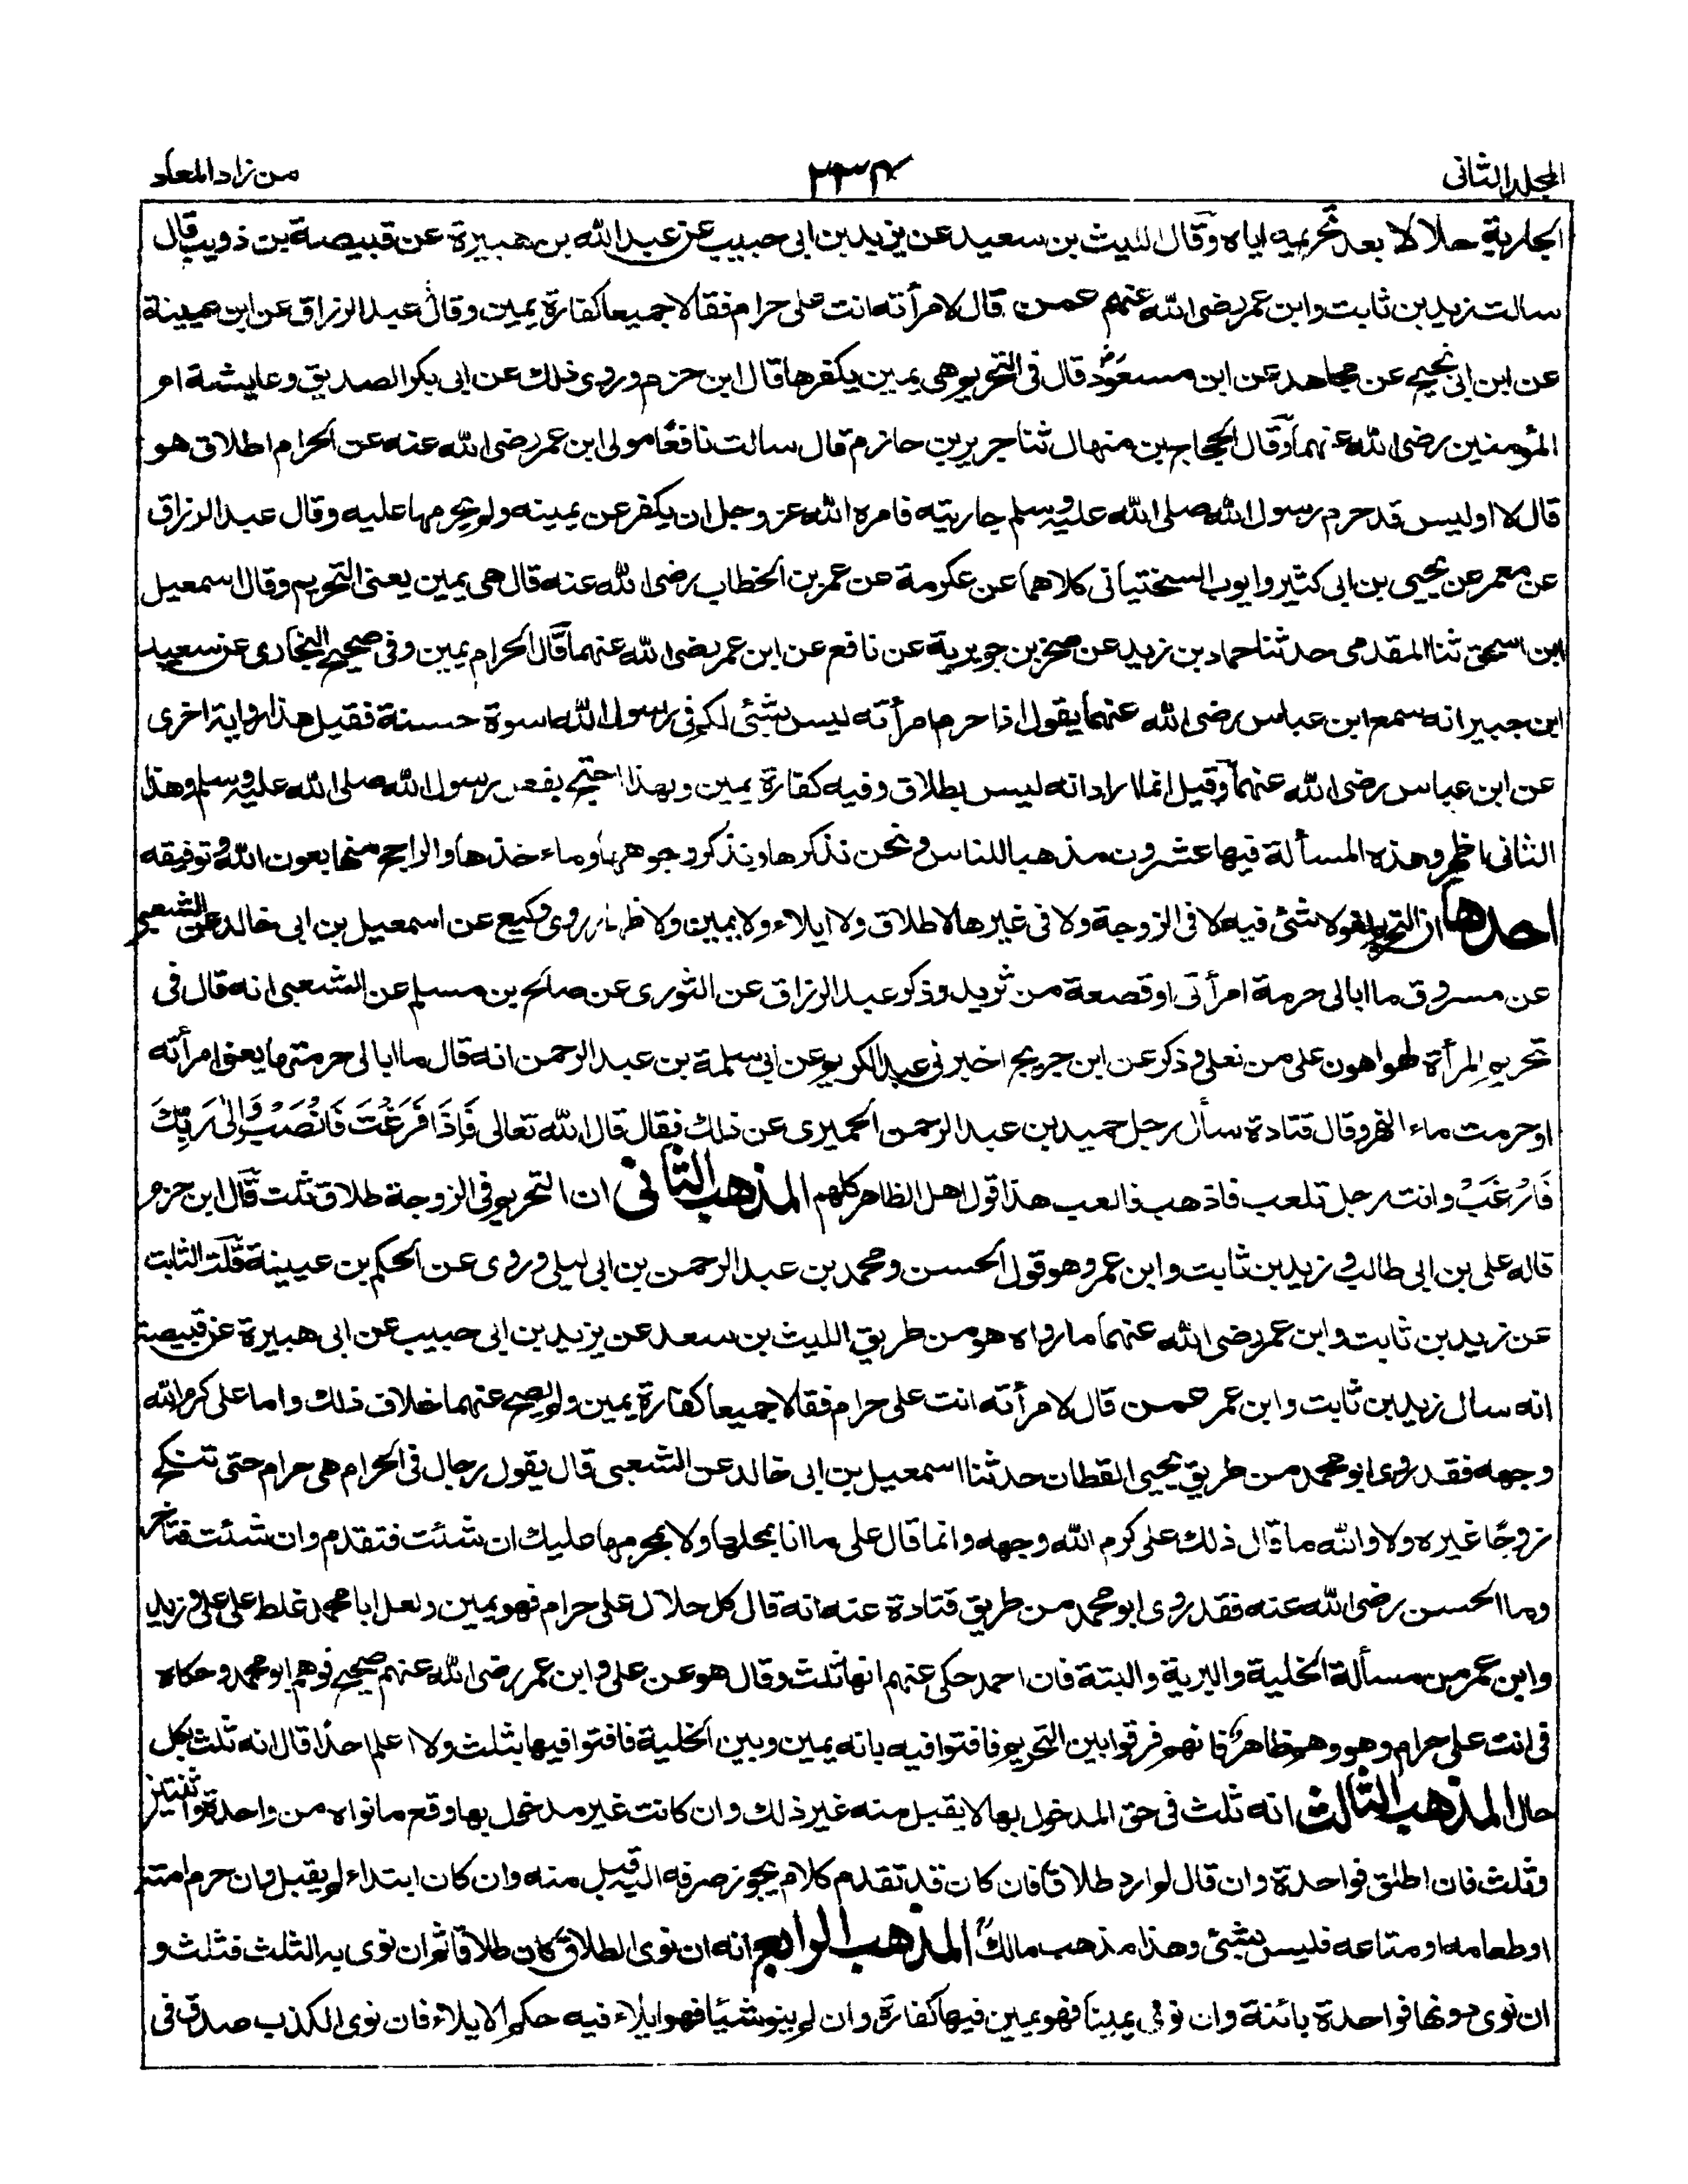 المجلد الثانى
٣٣٤
من زاد المعاد
الجارية حلالا بعد تحريمه اياه وقال الليث بن سعيد عن يزيد بن ابى حبيب عن عبد الله بن هبيرة عن قبيصة بن ذويب قال
سالت زيد بن ثابت وابن عمر رضى الله عنهم عمن قال لامرأته انت على حرام فقالا جميعا كفارة يمين وقال عبد الرزاق عن ابن عيينة
عن ابن ابى نجيح عن مجاهد عن ابن مسعود قال فى التحريم هى يمين يكفرها قال ابن حزم وروى ذلك عن ابى بكر الصديق وعايشة ام
المؤمنين رضى الله عنهما وقال الحجاج بن منهال ثنا جرير بن حازم قال سالت نافعا مولى ابن عمر رضى الله عنه عن الحرام اطلاق هو
قال لا اوليس قد حرم رسول الله صلى الله عليه وسلم جاريته فامره الله عز وجل ان يكفر عن يمينه ولم يحرمها عليه وقال عبد الرزاق
عن معمر عن يحيى بن ابى كثير وايوب السختيانى كلاهما عن عكرمة عن عمر بن الخطاب رضى الله عنه قال هى يمين يعنى التحريم وقال اسمعيل
ابن اسحق ثنا المقدمى حدثنا حماد بن زيد عن صخر بن جويرية عن نافع عن ابن عمر رضى الله عنهما قال الحرام يمين وفى صحيح البخارى عن سعيد
ابن جبير انه سمع ابن عباس رضى الله عنهما يقول اذا حرم امرأته ليس بشئى لكم فى رسول الله اسوة حسنة فقيل هذا رواية اخرى
عن ابن عباس رضى الله عنهما وقيل انما اراد انه ليس بطلاق وفيه كفارة يمين وبهذا احتج بفعل رسول الله صلى الله عليه وسلم وهذا
الثانى اظهر وهذه المسألة فيها عشرون مذهبا للناس ونحن نذكرها ونذكر وجوهها وماءخذها والراجح منها بعون الله وتوفيقه
احدها ان التحريم لغو لا شئى فيه لا فى الزوجة ولا فى غيرها لا طلاق ولا ايلاء ولا يمين ولا ظهار روى وكيع عن اسمعيل بن ابى خالد عن الشعبى
عن مسروق ما ابالى حرمة امرأتى او قصعة من ثريد وذكر عبد الرزاق عن الثورى عن صالح بن مسلم عن الشعبى انه قال فى
تحريم المرأة لهو اهون على من نعلى وذكر عن ابن جريج اخبرنى عبد الكريم عن ابى سلمة بن عبد الرحمن انه قال ما ابالى حرمتها يعنى امرأته
او حرمت ماء النهر وقال قتادة سأل رجل حميد بن عبد الرحمن الحميرى عن ذلك فقال قال الله تعالى فَاِذَا فَرَغْتَ فَانْصَبْ وَاِلٰى رَبِّكَ
فَارْغَبْ وانت رجل تلعب فاذهب فالعب هذا قول اهل الظاهر كلهم المذهب الثانى ان التحريم فى الزوجة طلاق ثلث قال ابن حزم
قاله على بن ابى طالب وزيد بن ثابت وابن عمر وهو قول الحسن ومحمد بن عبد الرحمن بن ابى ليلى وروى عن الحكم بن عيينة قلت الثابت
عن زيد بن ثابت وابن عمر رضى الله عنهما ما رواه هو من طريق الليث بن سعد عن يزيد بن ابى حبيب عن ابى هبيرة عن قبيصة
انه سال زيد بن ثابت وابن عمر عمن قال لامرأته انت على حرام فقالا جميعا كفارة يمين ولم يصح عنهما خلاف ذلك واما على كرم الله
وجهه فقد روى ابو محمد من طريق يحيى القطان حدثنا اسمعيل بن ابى خالد عن الشعبى قال يقول رجال فى الحرام هى حرام حتى تنكح
زوجًا غيره ولا والله ما قال ذلك على كرم الله وجهه وانما قال على ما انا بمحلها ولا بمحرمها عليك ان شئت فتقدم وان شئت فتاخر
وما الحسن رضى الله عنه فقد روى ابو محمد من طريق قتادة عنه انه قال كل حلال على حرام فهو يمين ولعل ابا محمد غلط على على وزيد
وابن عمر من مسألة الخلية والبرية والبتة فان احمد حكى عنهم انها ثلث وقال هو عن على وابن عمر رضى الله عنهم صحيح فوهم ابو محمد وحكاه
فى انت على حرام وهو وهم ظاهر فانهم فرقوا بين التحريم فافتوا فيه بانه يمين وبين الخلية فافتوا فيها بثلث ولا اعلم احدًا قال انه ثلث بكل
حال المذهب الثالث انه ثلث فى حق المدخول بها لا يقبل منه غير ذلك وان كانت غير مدخول بها وقع ما نواه من واحدة واثنتين
وثلث فان اطلق فواحدة وان قال لم ارد طلاقا فان كان قد تقدم كلام يجوز صرفه اليه قبل منه وان كان ابتداء لم يقبل وان حرم امته
او طعامه او متاعه فليس بشئى وهذا مذهب مالك المذهب الرابع انه ان نوى الطلاق كان طلاقا ثم ان نوى به الثلث فثلث و
ان نوى دونها فواحدة بائنة وان نوى يمينا فهو يمين فيها كفارة وان لم ينو شيئا فهو ايلاء فيه حكم الايلاء فان نوى الكذب صدق فى